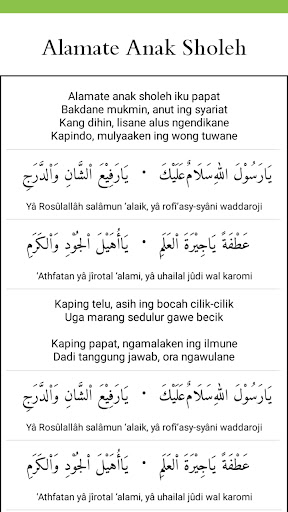 Alamate Anak Sholeh
Alamate anak sholeh iku papat
Bakdane mukmin, anut ing syariat
Kang dihin, lisane alus ngendikane
Kapindo, mulyaaken ing wong tuwane
يَارَسُوْلَ اللهِ سَلَامٌ عَلَيْكَ ・ يَارَفِيْعَ الشَّانِ وَالدَّرَجِ
Yâ Rosûlallâh salâmun 'alaik, yâ rofî'asy-syâni waddaroji
عَطْفَةً يَاجِيْرَةَ الْعَلَمِ ・ يَاأُهَيْلَ الْجُوْدِ وَالْكَرَمِ
'Athfatan yâ jîrotal 'alami, yâ uhailal jûdi wal karomi
Kaping telu, asih ing bocah cilik-cilik
Uga marang sedulur gawe becik
Kaping papat, ngamalaken ing ilmune
Dadi tanggung jawab, ora ngawulane
يَارَسُوْلَ اللهِ سَلَامٌ عَلَيْكَ ・ يَارَفِيْعَ الشَّانِ وَالدَّرَجِ
Yâ Rosûlallâh salâmun 'alaik, yâ rofî'asy-syâni waddaroji
عَطْفَةً يَاجِيْرَةَ الْعَلَمِ ・ يَاأُهَيْلَ الْجُوْدِ وَالْكَرَمِ
'Athfatan yâ jîrotal 'alami, yâ uhailal jûdi wal karomi